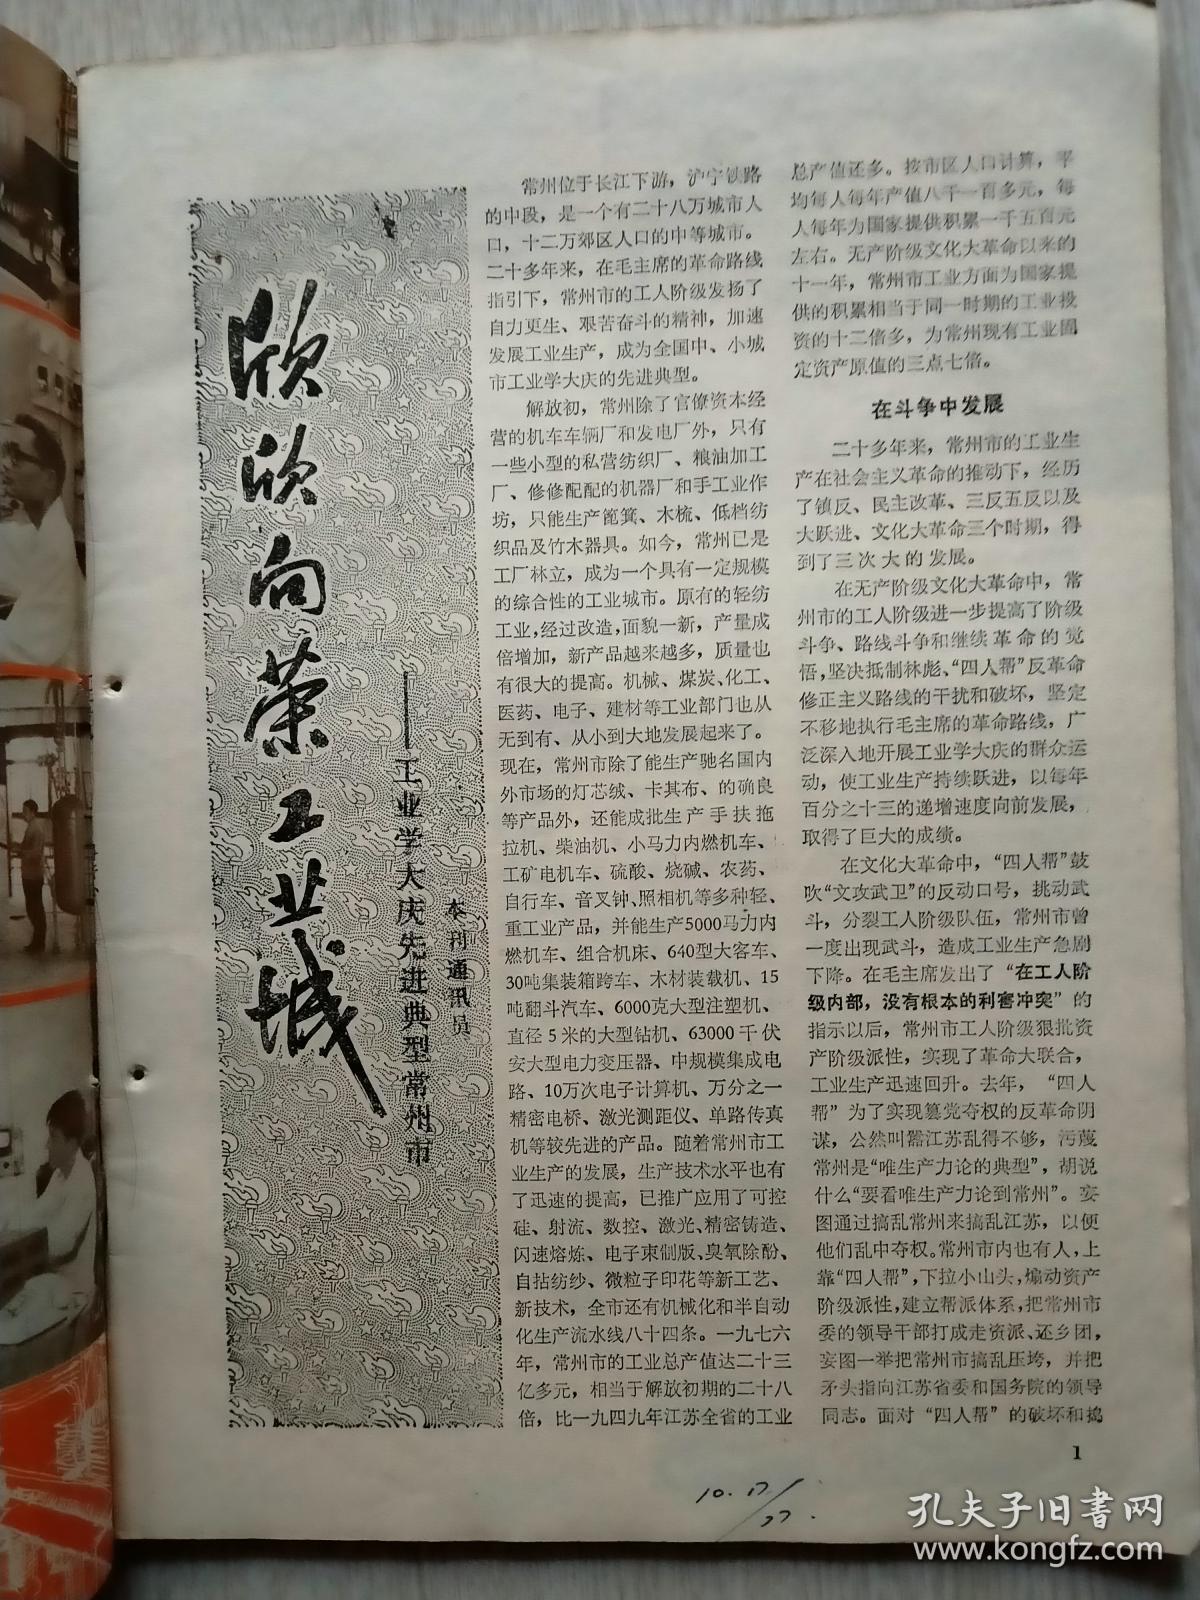 欣欣向荣工业城
——工业学大庆先进典型常州市
本刊通讯员
常州位于长江下游，沪宁铁路
的中段，是一个有二十八万城市人
口，十二万郊区人口的中等城市。
二十多年来，在毛主席的革命路线
指引下，常州市的工人阶级发扬了
自力更生、艰苦奋斗的精神，加速
发展工业生产，成为全国中、小城
市工业学大庆的先进典型。
解放初，常州除了官僚资本经
营的机车车辆厂和发电厂外，只有
一些小型的私营纺织厂、粮油加工
厂、修修配配的机器厂和手工业作
坊，只能生产篦箕、木梳、低档纺
织品及竹木器具。如今，常州已是
工厂林立，成为一个具有一定规模
的综合性的工业城市。原有的轻纺
工业，经过改造，面貌一新，产量成
倍增加，新产品越来越多，质量也
有很大的提高。机械、煤炭、化工、
医药、电子、建材等工业部门也从
无到有、从小到大地发展起来了。
现在，常州市除了能生产驰名国内
外市场的灯芯绒、卡其布、的确良
等产品外，还能成批生产手扶拖
拉机、柴油机、小马力内燃机车、
工矿电机车、硫酸、烧碱、农药、
自行车、音叉钟、照相机等多种轻、
重工业产品，并能生产5000马力内
燃机车、组合机床、640型大客车、
30吨集装箱跨车、木材装载机、15
吨翻斗汽车、6000克大型注塑机、
直径5米的大型钻机、63000千伏
安大型电力变压器、中规模集成电
路、10万次电子计算机、万分之一
精密电桥、激光测距仪、单路传真
机等较先进的产品。随着常州市工
业生产的发展，生产技术水平也有
了迅速的提高，已推广应用了可控
硅、射流、数控、激光、精密铸造、
闪速熔炼、电子束制版、臭氧除酚、
自拈纺纱、微粒子印花等新工艺、
新技术，全市还有机械化和半自动
化生产流水线八十四条。一九七六
年，常州市的工业总产值达二十三
亿多元，相当于解放初期的二十八
倍，比一九四九年江苏全省的工业
总产值还多。按市区人口计算，平
均每人每年产值八千一百多元，每
人每年为国家提供积累一千五百元
左右。无产阶级文化大革命以来的
十一年，常州市工业方面为国家提
供的积累相当于同一时期的工业投
资的十二倍多，为常州现有工业固
定资产原值的三点七倍。
在斗争中发展
二十多年来，常州市的工业生
产在社会主义革命的推动下，经历
了镇反、民主改革、三反五反以及
大跃进、文化大革命三个时期，得
到了三次大的发展。
在无产阶级文化大革命中，常
州市的工人阶级进一步提高了阶级
斗争、路线斗争和继续革命的觉
悟，坚决抵制林彪、“四人帮”反革命
修正主义路线的干扰和破坏，坚定
不移地执行毛主席的革命路线，广
泛深入地开展工业学大庆的群众运
动，使工业生产持续跃进，以每年
百分之十三的递增速度向前发展，
取得了巨大的成绩。
在文化大革命中，“四人帮”鼓
吹“文攻武卫”的反动口号，挑动武
斗，分裂工人阶级队伍，常州市曾
一度出现武斗，造成工业生产急剧
下降。在毛主席发出了“在工人阶
级内部，没有根本的利害冲突”的
指示以后，常州市工人阶级狠批资
产阶级派性，实现了革命大联合，
工业生产迅速回升。去年，“四人
帮”为了实现篡党夺权的反革命阴
谋，公然叫嚣江苏乱得不够，污蔑
常州是“唯生产力论的典型”，胡说
什么“要看唯生产力论到常州”。妄
图通过搞乱常州来搞乱江苏，以便
他们乱中夺权。常州市内也有人，上
靠“四人帮”，下拉小山头，煽动资产
阶级派性，建立帮派体系，把常州市
委的领导干部打成走资派、还乡团，
妄图一举把常州市搞乱压垮，并把
矛头指向江苏省委和国务院的领导
同志。面对“四人帮”的破坏和捣
1
10.17/77.
孔夫子旧书网
www.kongfz.com